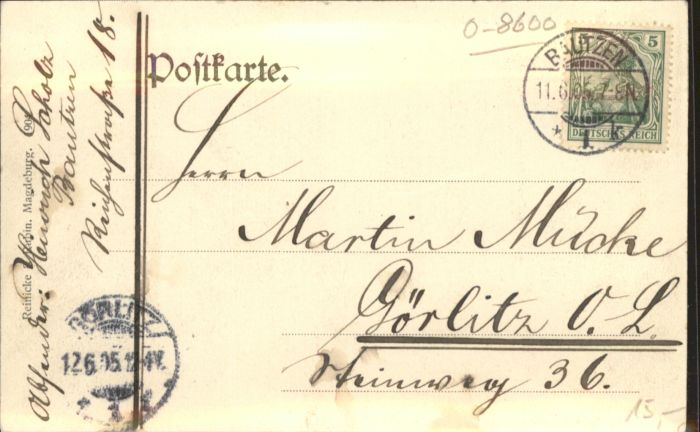 0-8600
Postkarte.
5
DEUTSCHES REICH
BAUTZEN
11.6.05.7-8N.
* 1. k
Herrn
Martin Mücke
Görlitz O. L.
Steinweg 36.
Absender: Heinrich Scholz
Bautzen
Reichenstrasse 18.
Reinicke Magdeburg.
GÖRLITZ
12.6.05.
15,-